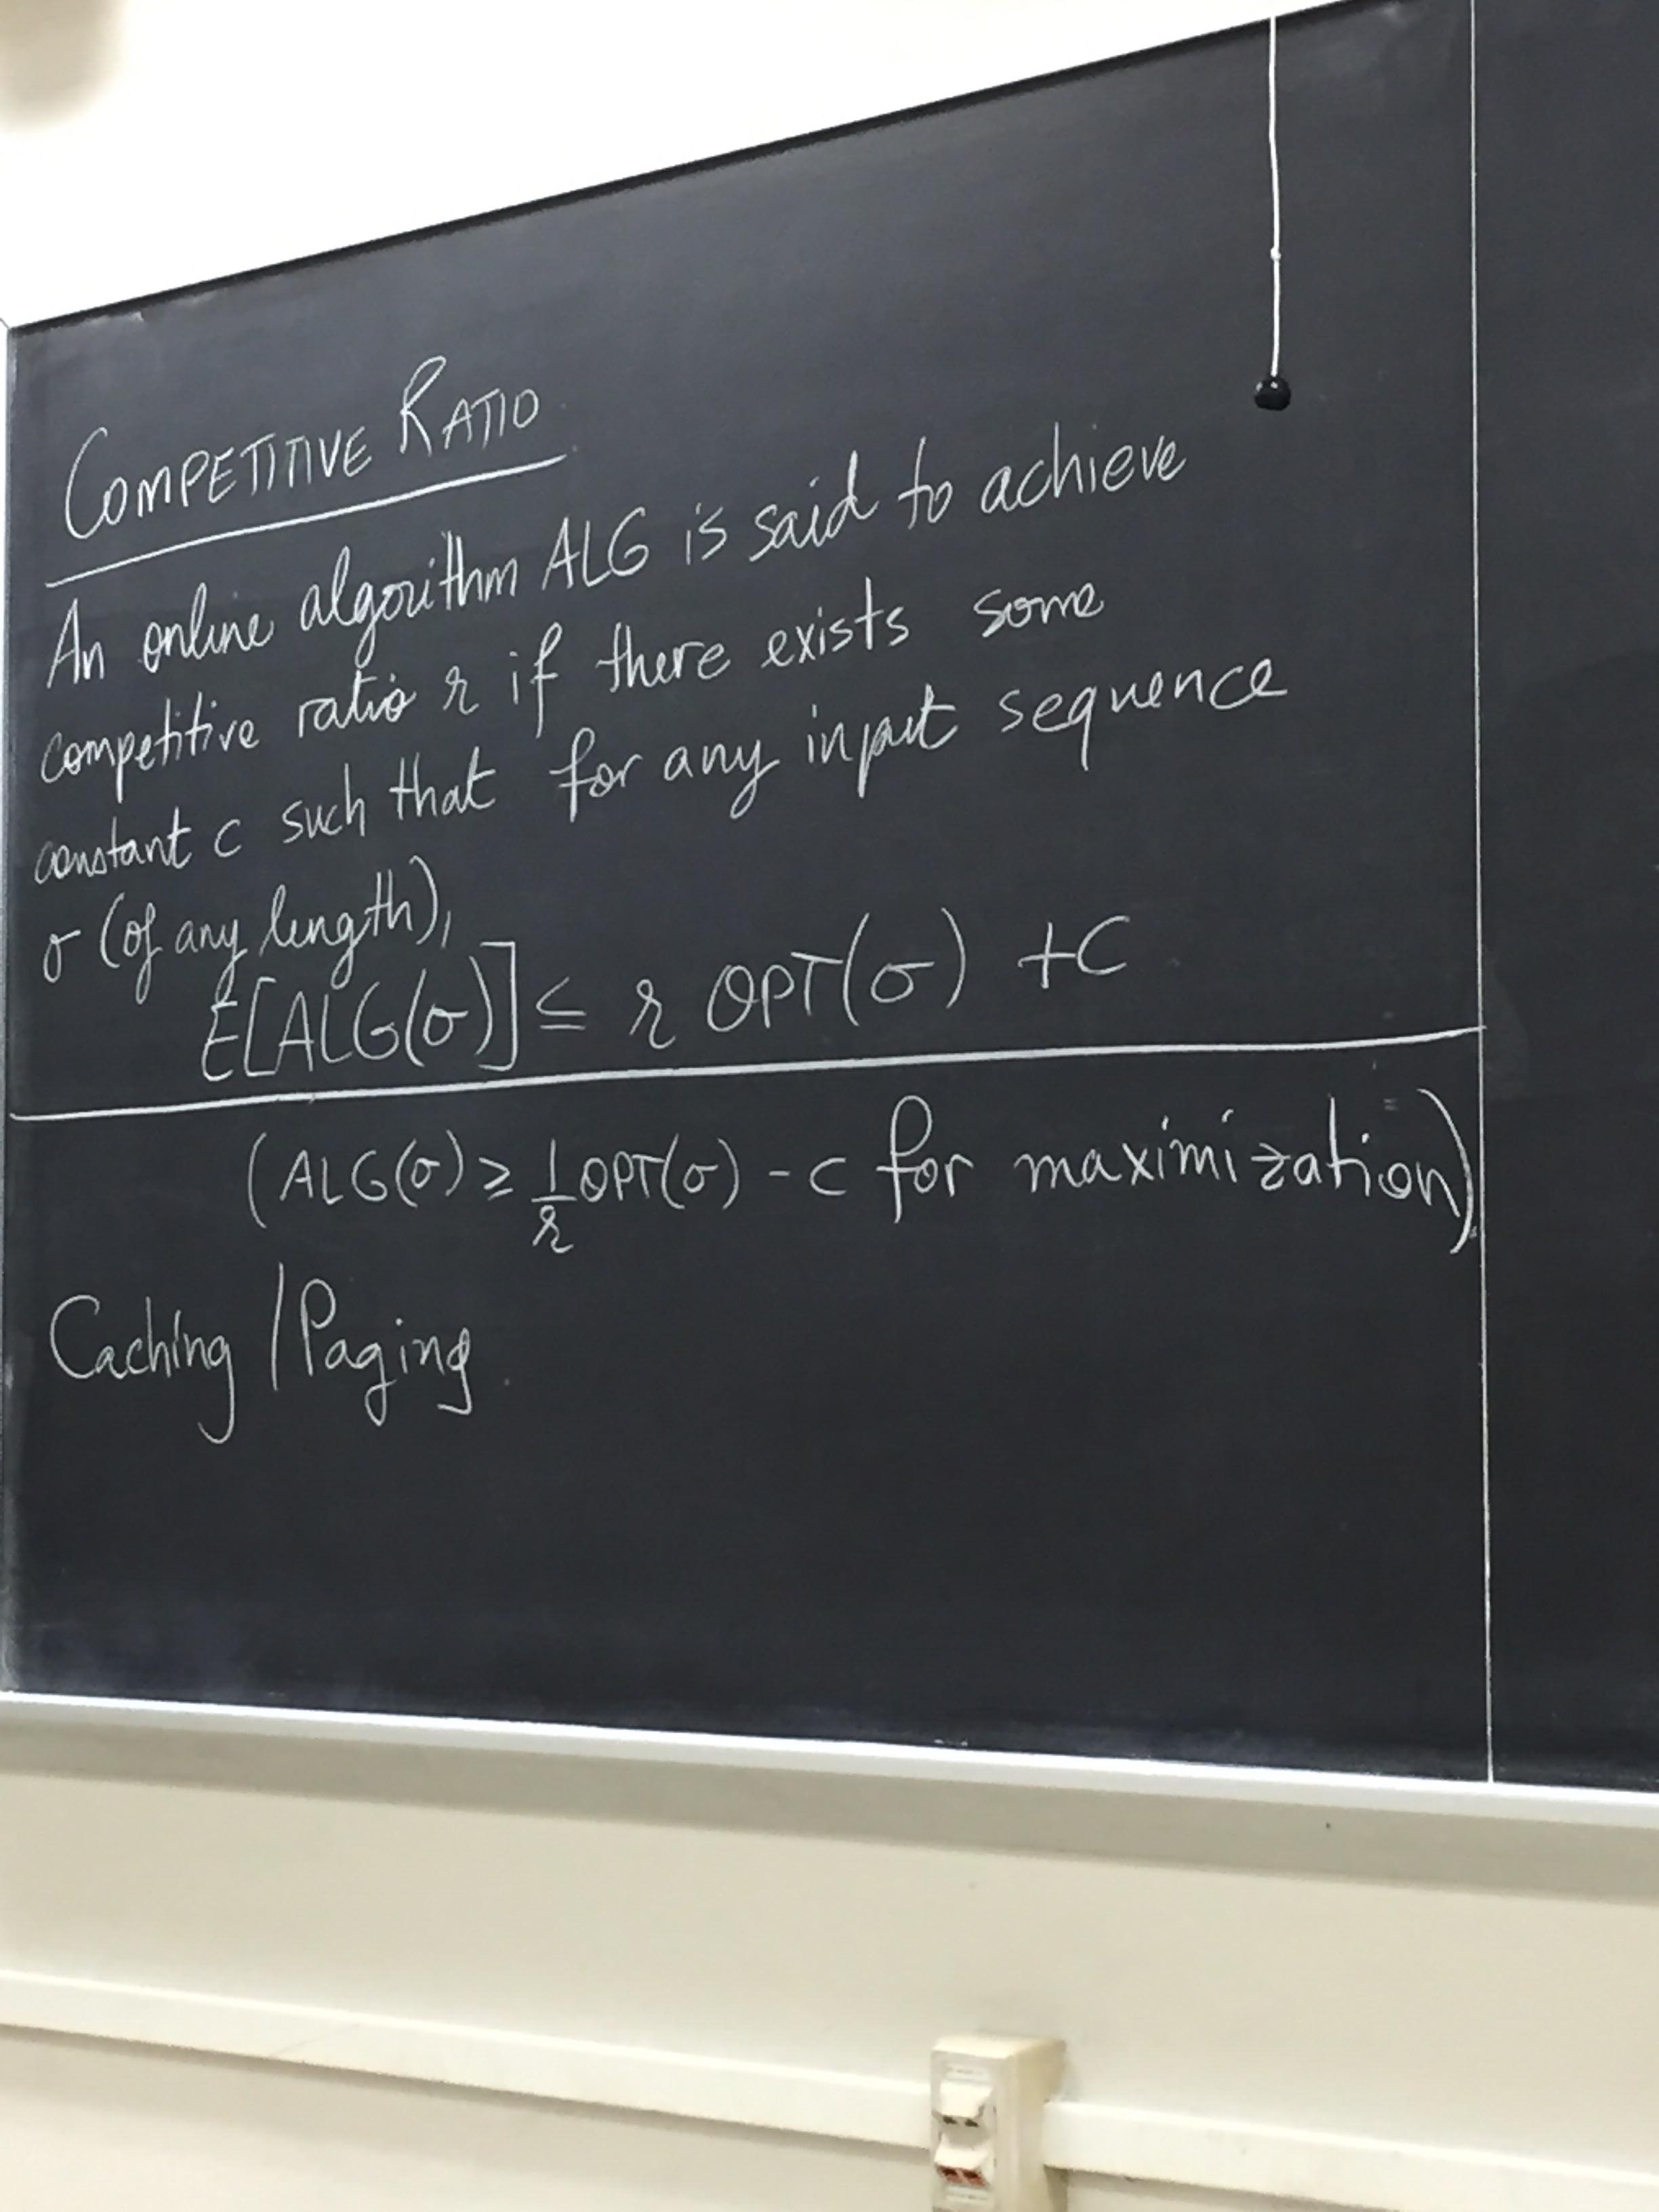 COMPETITIVE RATIO
An online algorithm ALG is said to achieve
competitive ratio r if there exists some
constant c such that for any input sequence
σ (of any length),
E[ALG(σ)] ≤ r OPT(σ) + C
(ALG(σ) ≥ 1/r OPT(σ) - c for maximization).
Caching / Paging